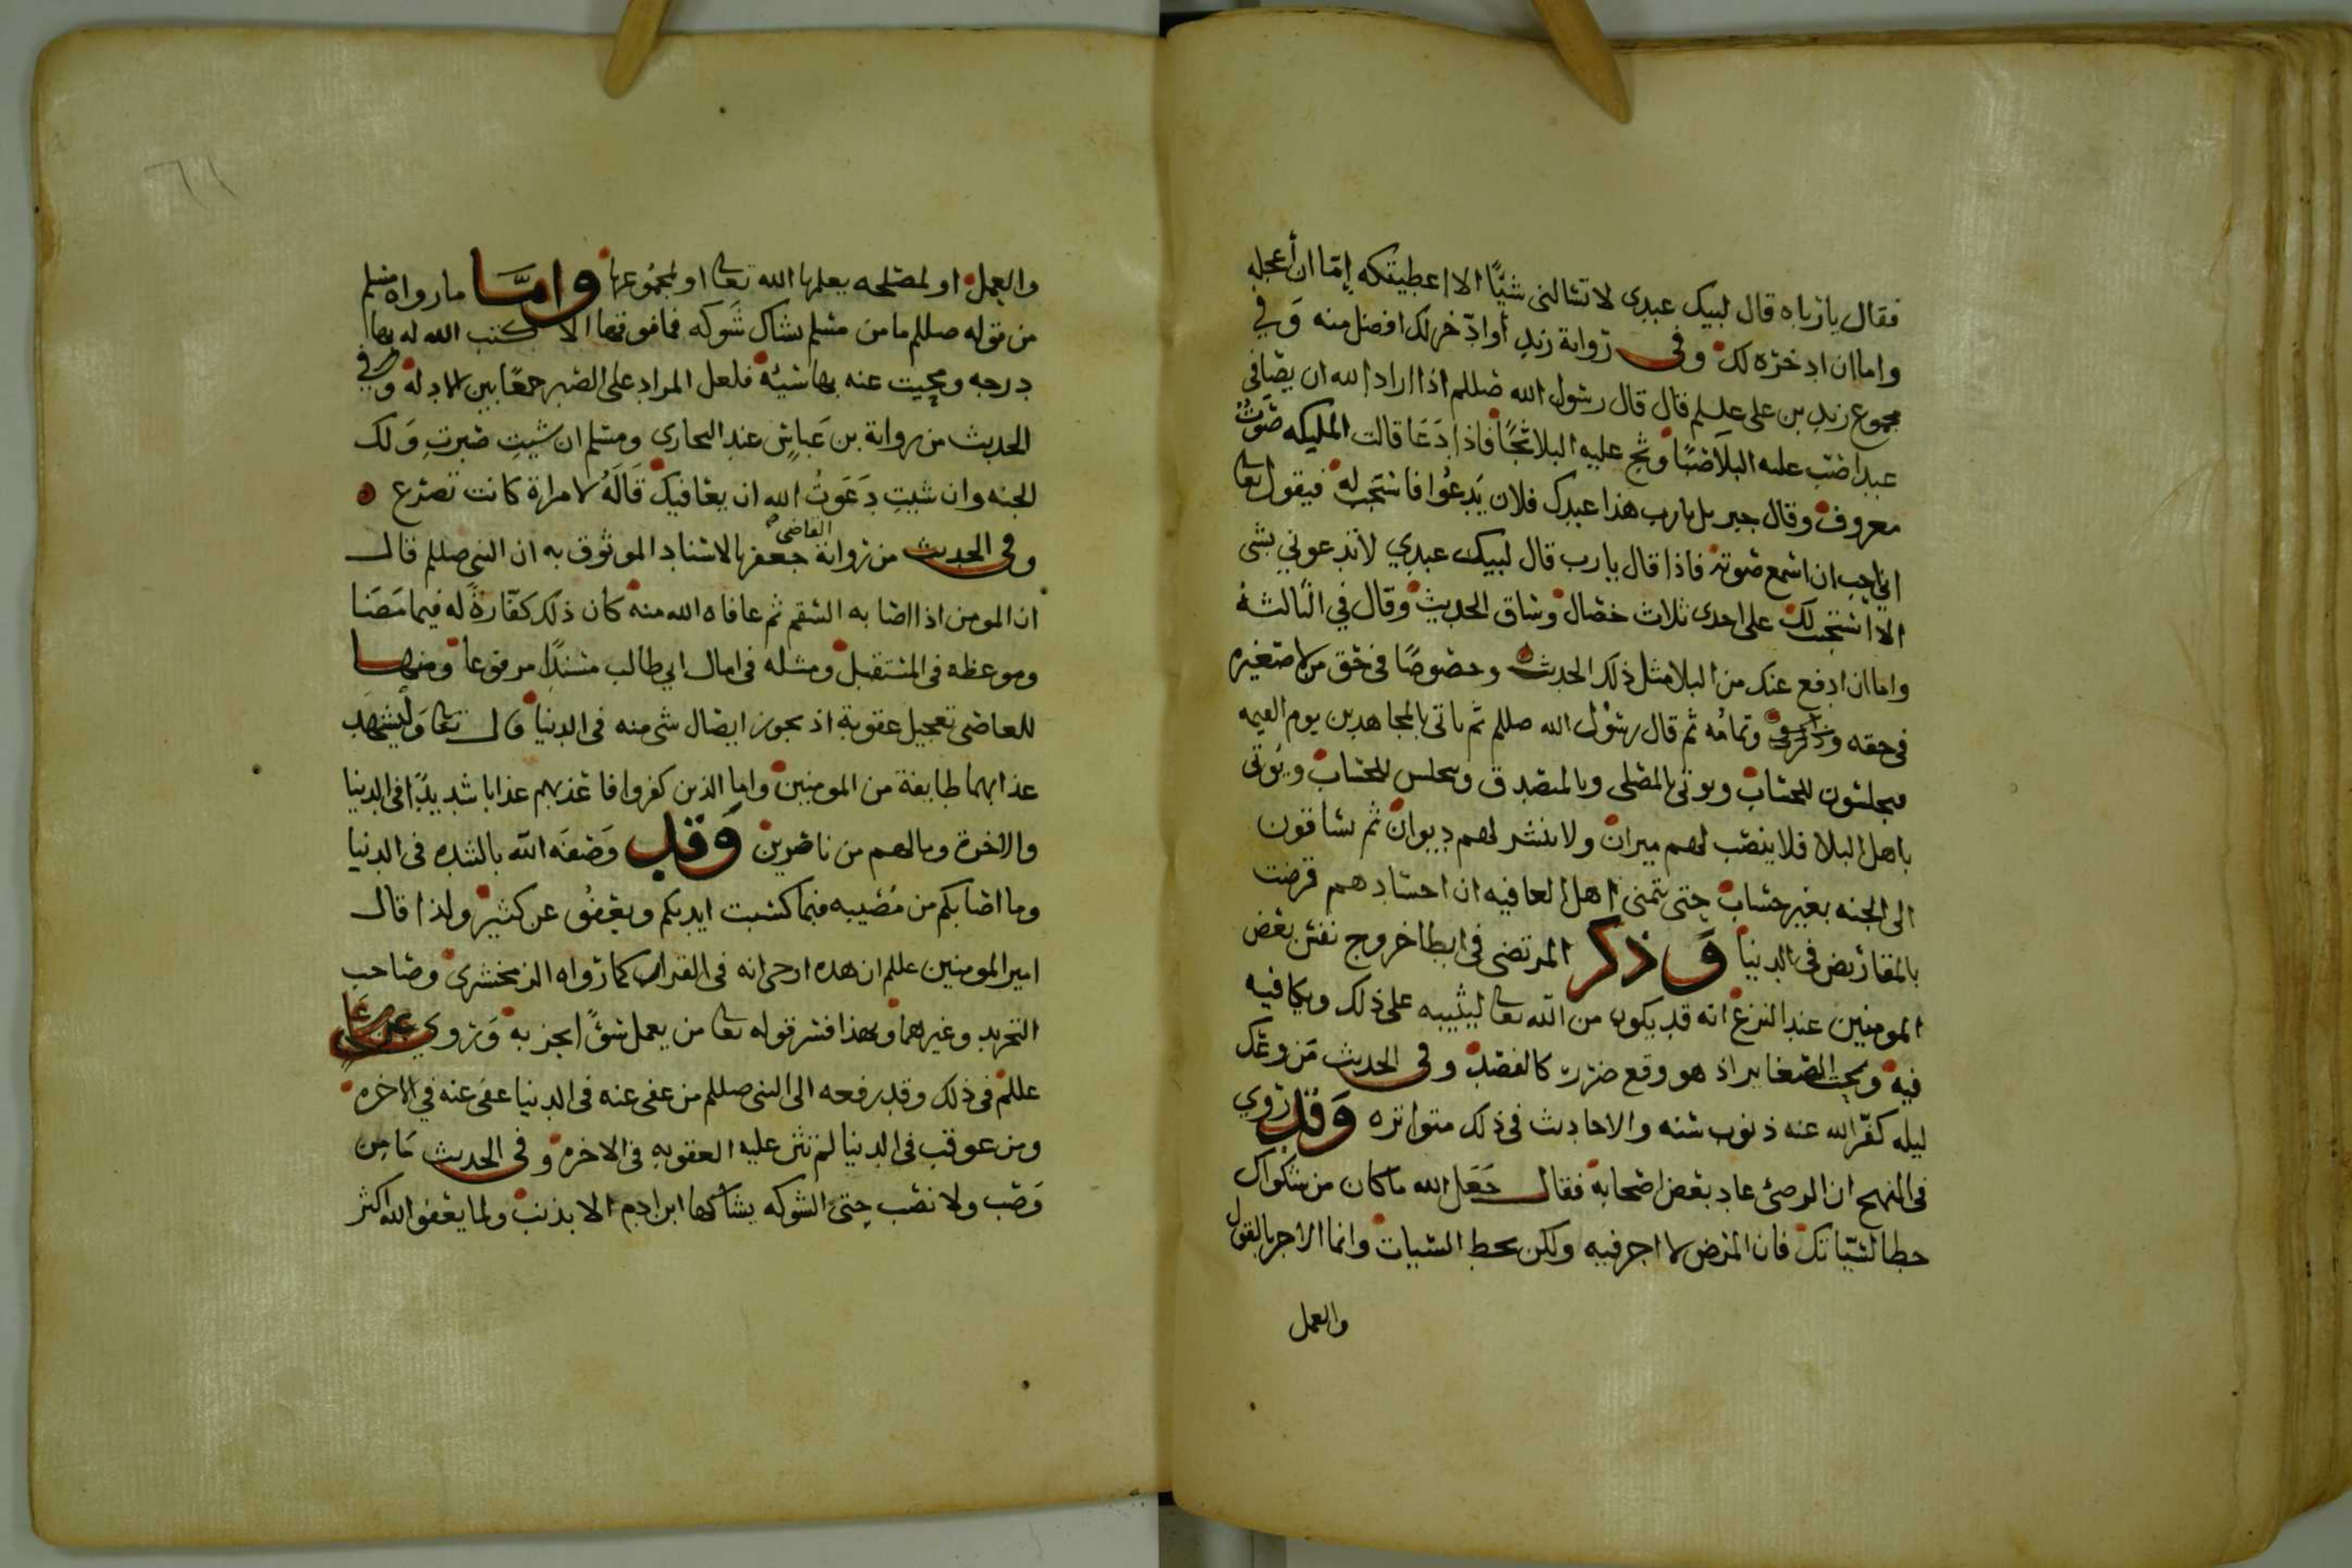 فقال يا رباه قال لبيك عبدي لا تسالني شيًّا الا اعطيتكه إمّا ان أعجله
واما ان ادخره لك وفي رواية زيد أو ادّخر لك افضل منه وَفي
مجموع زيد بن علي علسلم قال قال رسول الله صللم اذا اراد الله ان يصافي
عبدا صب عليه البلَا صبًّا وثج عليه البلا ثجًّا فاذا دَعَا قالت المليكه صَوتٌ
معروف وقال جبريل يا رب هذا عبدك فلان يَدعُوا فاستَجب له فيقول تعا
اني احب ان اسمع صوته فاذا قال يا رب قال لبيك عبدي لا تدعوني بشي
الا أستجبت لك على احدى ثلاث خصال وساق الحديث وقال في الثالثة
واما ان ادفع عنك من البلا مثل ذلك الحديث وخصوصًا في حَق من لا صغيره
في حقه وتمامُه ثم قال رسول الله صللم ثم ياتي بالمجاهدين يوم القيمه
فيجلسون للحساب ويوتى بالمصلي وبالمتصدق ويجلس للحساب ويُوتى
باهل البلا فلا ينصب لهم ميزان ولا ينشر لهم ديوان ثم يساقون
الى الجنه بغير حساب حتى يتمنى اهل العافيه ان اجسادهم قرضت
بالمقاريض في الدنيا وَذكر المرتضى في ابطا خروج نفس بعض
المومنين عند النزع انه قد يكون من الله تعا ليثيبه على ذلك ويكافيه
فيه وبحت الصغاير اذ هو وقع ضرر كالفصد وفي الحديث مَن وعك
ليله كفّر الله عنه ذنوب سنه والاحاديث في ذلك متواتره وَقد روي
في النهج ان الوصي عاد بعض اصحابه فقال جَعَل الله ما كان من شكواك
حطا لسيّاتك فان المرض لا اجر فيه ولكن يحط السيات وانما الاجر بالقول
والعمل
والعمل او لمصلحه يعلمها الله تعا او لمجمُوعها وامَّا ما رواه مسلم
من قوله صللم ما من مسلم يشاك شَوكه فما فوقها الا كتب الله له بها
درجه ومحيت عنه بها سَيئه فلعل المراد على الصبر جمعًا بين الادله وفي
الحديث من رواية بن عَباسٍ عند البخاري ومسلم ان شيتِ صبرتِ وَلك
الجنه وان شيتِ دَعَوتُ الله ان يعافيك قَالَهُ لامراة كانت تصرع
وفي الحديث من رواية القاضي جعفر بالاسناد الموثوق به ان النبي صللم قال
ان المومن اذا اصابه السقم ثم عافاه الله منه كان ذلك كفّارةً له فيما مَضَا
وموعظه في المستقبل ومثله في امالي ابي طالب مسندًا مرفوعا ومنها
للعاصي تعجيل عقوبة اذ يجوز ايصال شي منه في الدنيا قال تعا وَليشهَد
عذابهما طايفة من المومنين واما الذين كفروا فاعذبهم عذابا شديدًا في الدنيا
والاخرة ومالهم من ناصرين وَقد وَصَفَه الله بالشده في الدنيا
وما اصابكم من مُصيبه فبما كسبت ايديكم ويعفُو عن كثير ولذا قال
امير المومنين عللم ان هذه ارجى ايه في القران كما رواه الزمخشري وصاحب
التجريد وغيرهما وبهذا فسر قوله تعا من يعمل سُوًّا يجز به وَروي عن عَلي
عللم في ذلك وقد رفعه الى النبي صللم من عفي عنه في الدنيا عفي عنه في الاخره
ومن عوقب في الدنيا لم تثن عليه العقوبه في الاخره وفي الحديث مَا مِن
وَصَب ولا نصَب حتى الشوكه يشاكها ابن ادم الا بذنب ولما يعفو الله اكثر